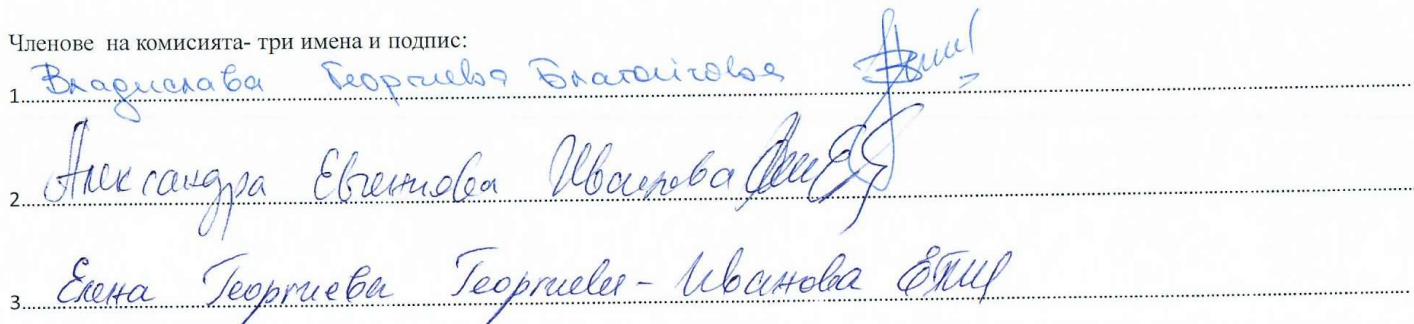 Членове на комисията- три имена и подпис:
1. Владислава Георгиева Благойчова
2. Александра Евгениова Иванова
3. Елена Георгиева Георгиева - Иванова